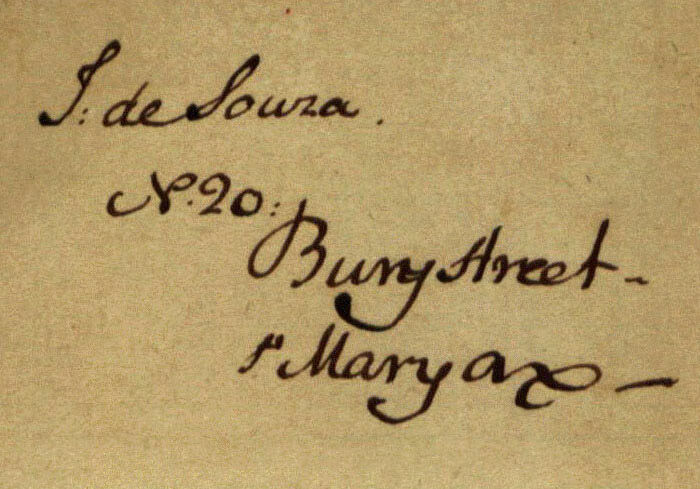 J: de Souza.
N. 20:
Bury Street -
St Mary ax -